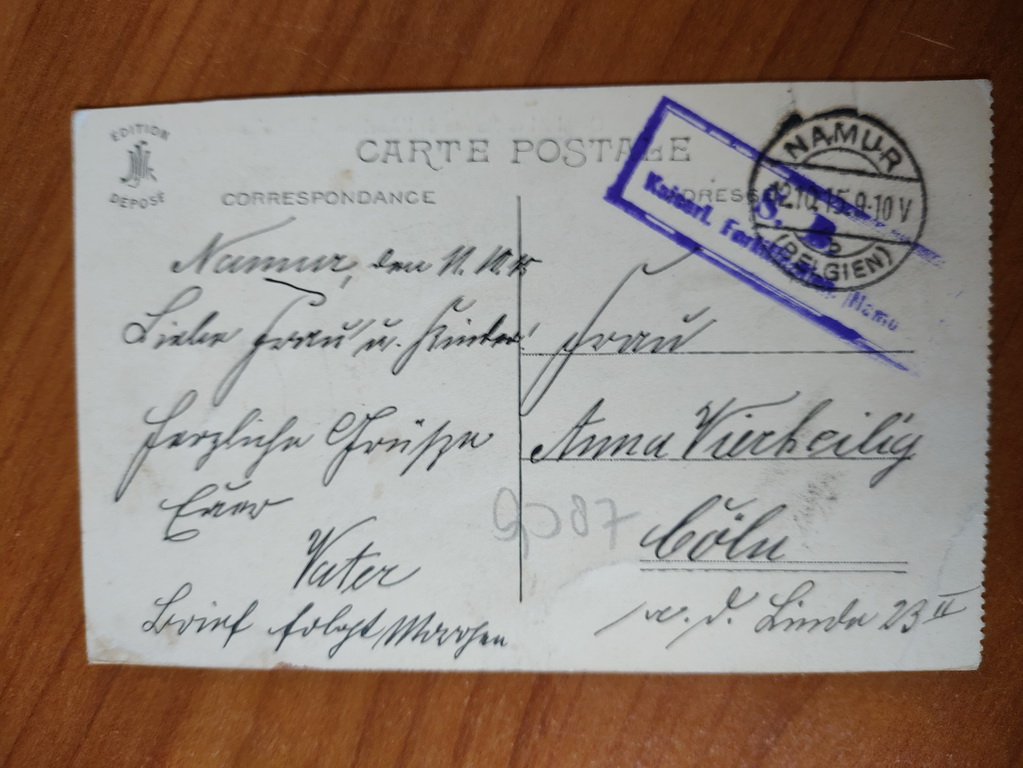 EDITION
DEPOSÉ
CARTE POSTALE
CORRESPONDANCE
ADRESSE
NAMUR
12.10.15.9-10V
(BELGIEN)
S. B.
Kaiserl. Namu
Namur, den 11.10.15
Liebe Frau u. Kinder!
Herzliche Grüße
Euer
Vater
Brief folgt Morgen
Frau
Anna Vierheilig
Cöln
a. d. Linde 23 II